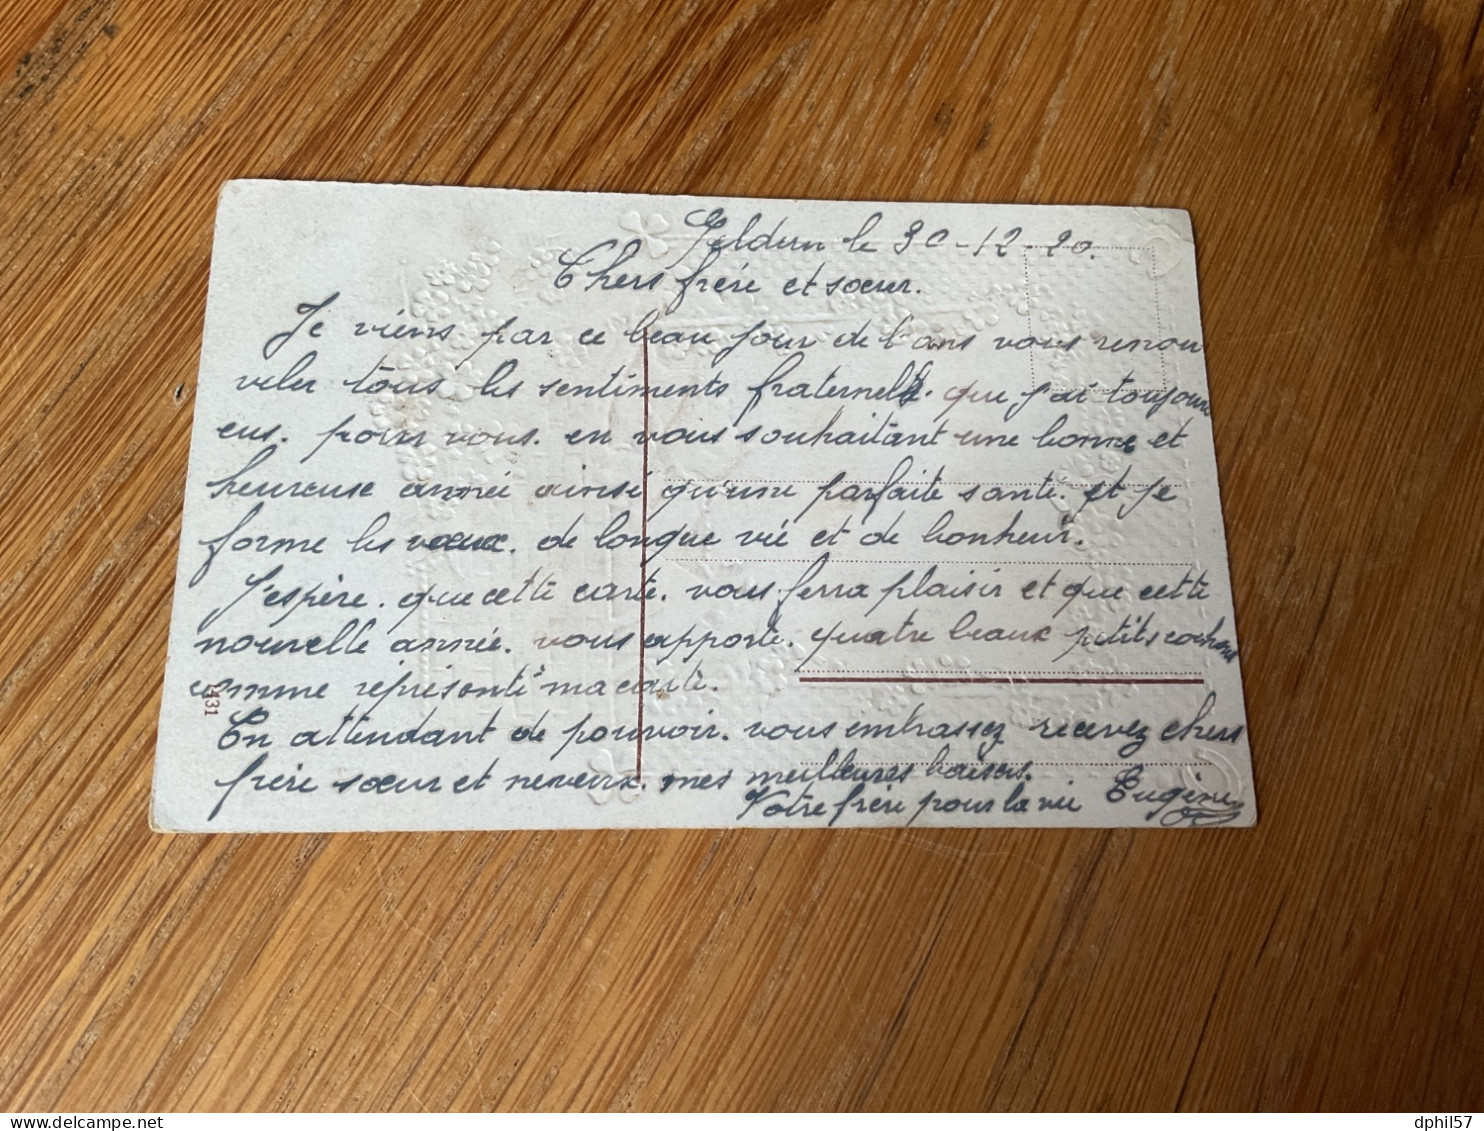 Geldern le 30-12-20.
Chers frère et sœur.
Je viens par ce beau jour de l'ans vous renou
veler tous les sentiments fraternels. que j'ai toujours
eus. pour vous. en vous souhaitant une bonne et
heureuse année ainsi qu'une parfaite santé. et je
forme les vœux. de longue vie et de bonheur.
J'espère. que cette carte. vous ferra plaisir et que cette
nouvelle année. vous apporte. quatre beaux petits cochons
comme représenté ma carte.
En attendant de pouvoir. vous embrassez recevez chers
frère sœur et neveux. mes meilleures baisers.
Votre frère pour la vie Eugène
431
dphil57